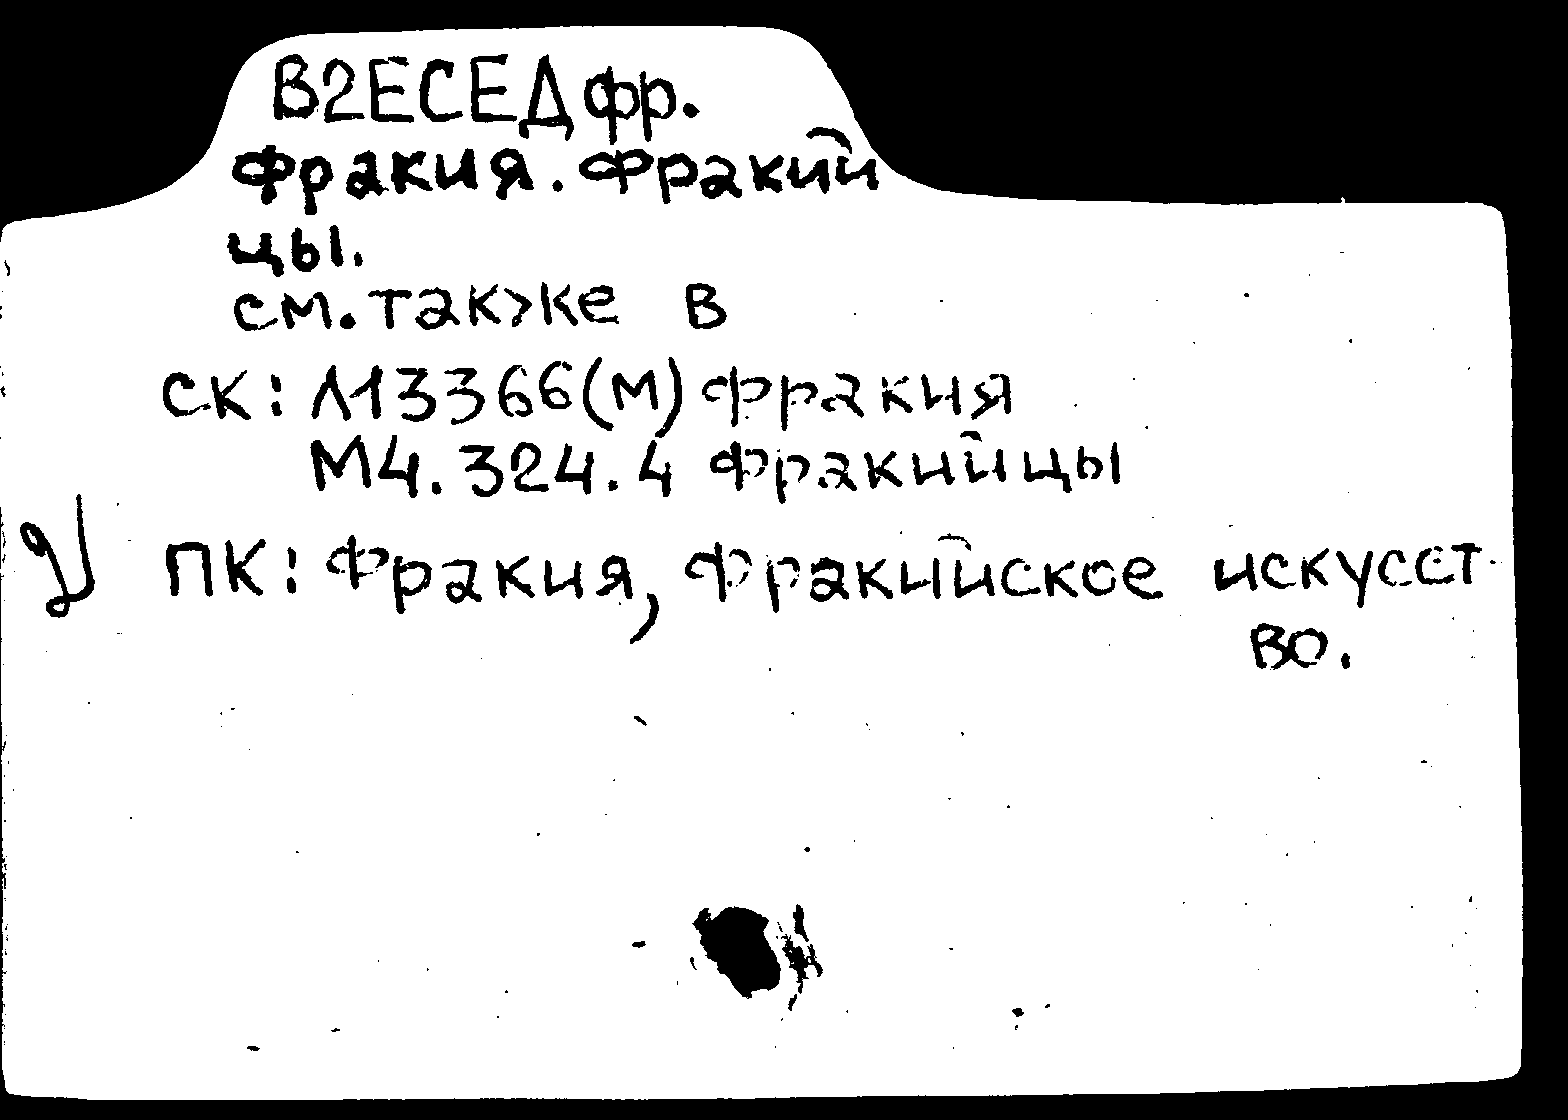 В2ЕСЕДфр.
Фракия. Фракий
цы.
см. также в
СК: Л13366(М) Фракия
М4.324.4 Фракийцы
ПК: Фракия, Фракийское искусст
во.